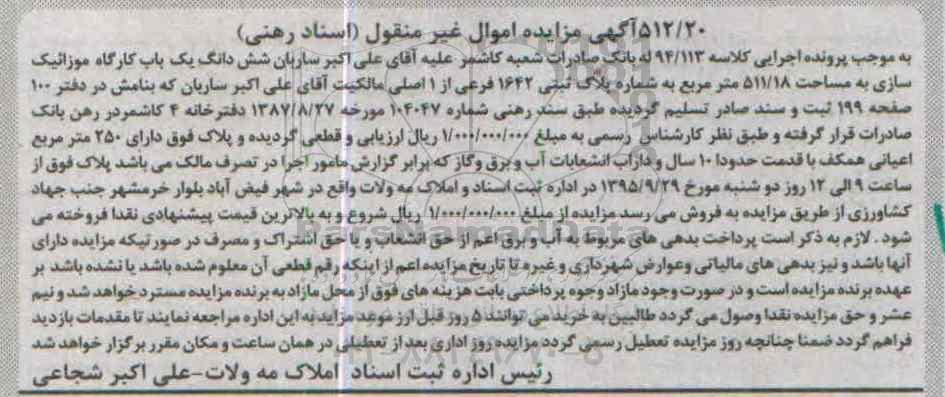 ۵۱۲/۲۰آگهی مزایده اموال غیر منقول (اسناد رهنی)
به موجب پرونده اجرایی کلاسه ۹۴/۱۱۳ له بانک صادرات شعبه کاشمر علیه آقای علی اکبر ساربان شش دانگ یک باب کارگاه موزائیک
سازی به مساحت ۵۱۱/۱۸ متر مربع به شماره پلاک ثبتی ۱۶۴۲ فرعی از ۱ اصلی مالکیت آقای علی اکبر ساربان که بنامش در دفتر ۱۰۰
صفحه ۱۹۹ ثبت و سند صادر تسلیم گردیده طبق سند رهنی شماره ۱۰۴۰۴۷ مورخه ۱۳۸۷/۸/۲۷ دفترخانه ۴ کاشمردر رهن بانک
صادرات قرار گرفته و طبق نظر کارشناس رسمی به مبلغ ۱/۰۰۰/۰۰۰/۰۰۰ ریال ارزیابی و قطعی گردیده و پلاک فوق دارای ۲۵۰ متر مربع
اعیانی همکف با قدمت حدودا ۱۰ سال و داراب انشعابات آب و برق وگاز که برابر گزارش مامور اجرا در تصرف مالک می باشد پلاک فوق از
ساعت ۹ الی ۱۲ روز دو شنبه مورخ ۱۳۹۵/۹/۲۹ در اداره ثبت اسناد و املاک مه ولات واقع در شهر فیض آباد بلوار خرمشهر جنب جهاد
کشاورزی از طریق مزایده به فروش می رسد مزایده از مبلغ ۱/۰۰۰/۰۰۰/۰۰۰ ریال شروع و به بالاترین قیمت پیشنهادی نقدا فروخته می
شود . لازم به ذکر است پرداخت بدهی های مربوط به آب و برق اعم از حق انشعاب و یا حق اشتراک و مصرف در صورتیکه مزایده دارای
آنها باشد و نیز بدهی های مالیاتی وعوارض شهرداری و غیره تا تاریخ مزایده اعم از اینکه رقم قطعی آن معلوم شده باشد یا نشده باشد بر
عهده برنده مزایده است و در صورت وجود مازاد وجوه پرداختی بابت هزینه های فوق از محل مازاد به برنده مزایده مسترد خواهد شد و نیم
عشر و حق مزایده نقدا وصول می گردد طالبین به خرید می توانند ۵ روز قبل ارز موعد مزاید به این اداره مراجعه نمایند تا مقدمات بازدید
فراهم گردد ضمنا چنانچه روز مزایده تعطیل رسمی گردد مزایده روز اداری بعد از تعطیلی در همان ساعت و مکان مقرر برگزار خواهد شد
رئیس اداره ثبت اسناد املاک مه ولات-علی اکبر شجاعی
ParsNamadData